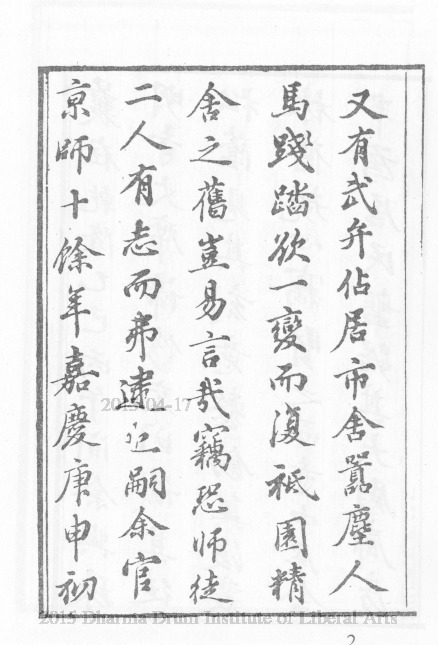 又有武弁佔居市舍囂塵人
馬踐踏欲一變而復祇園精
舍之舊豈易言哉竊恐師徒
二人有志而弗逮也嗣余官
京師十餘年嘉慶庚申初
2015-04-17
2015 Dharma Drum Institute of Liberal Arts
2